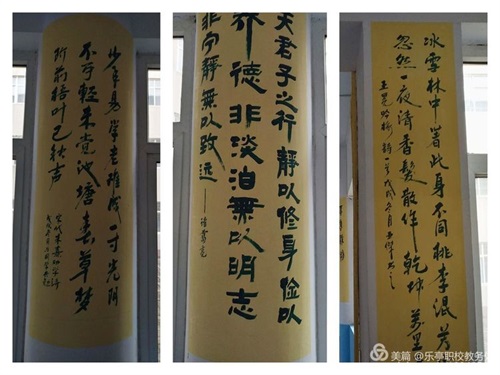 少年易学老难成一寸光阴
不可轻未觉池塘春草梦
阶前梧叶已秋声
宋代朱熹劝学诗
夫君子之行静以修身俭以
养德非淡泊無以明志
非宁静無以致远——诸葛亮
冰雪林中著此身不同桃李混芳
忽然一夜清香髮散作乾坤萬里
美篇 @乐亭职校教务